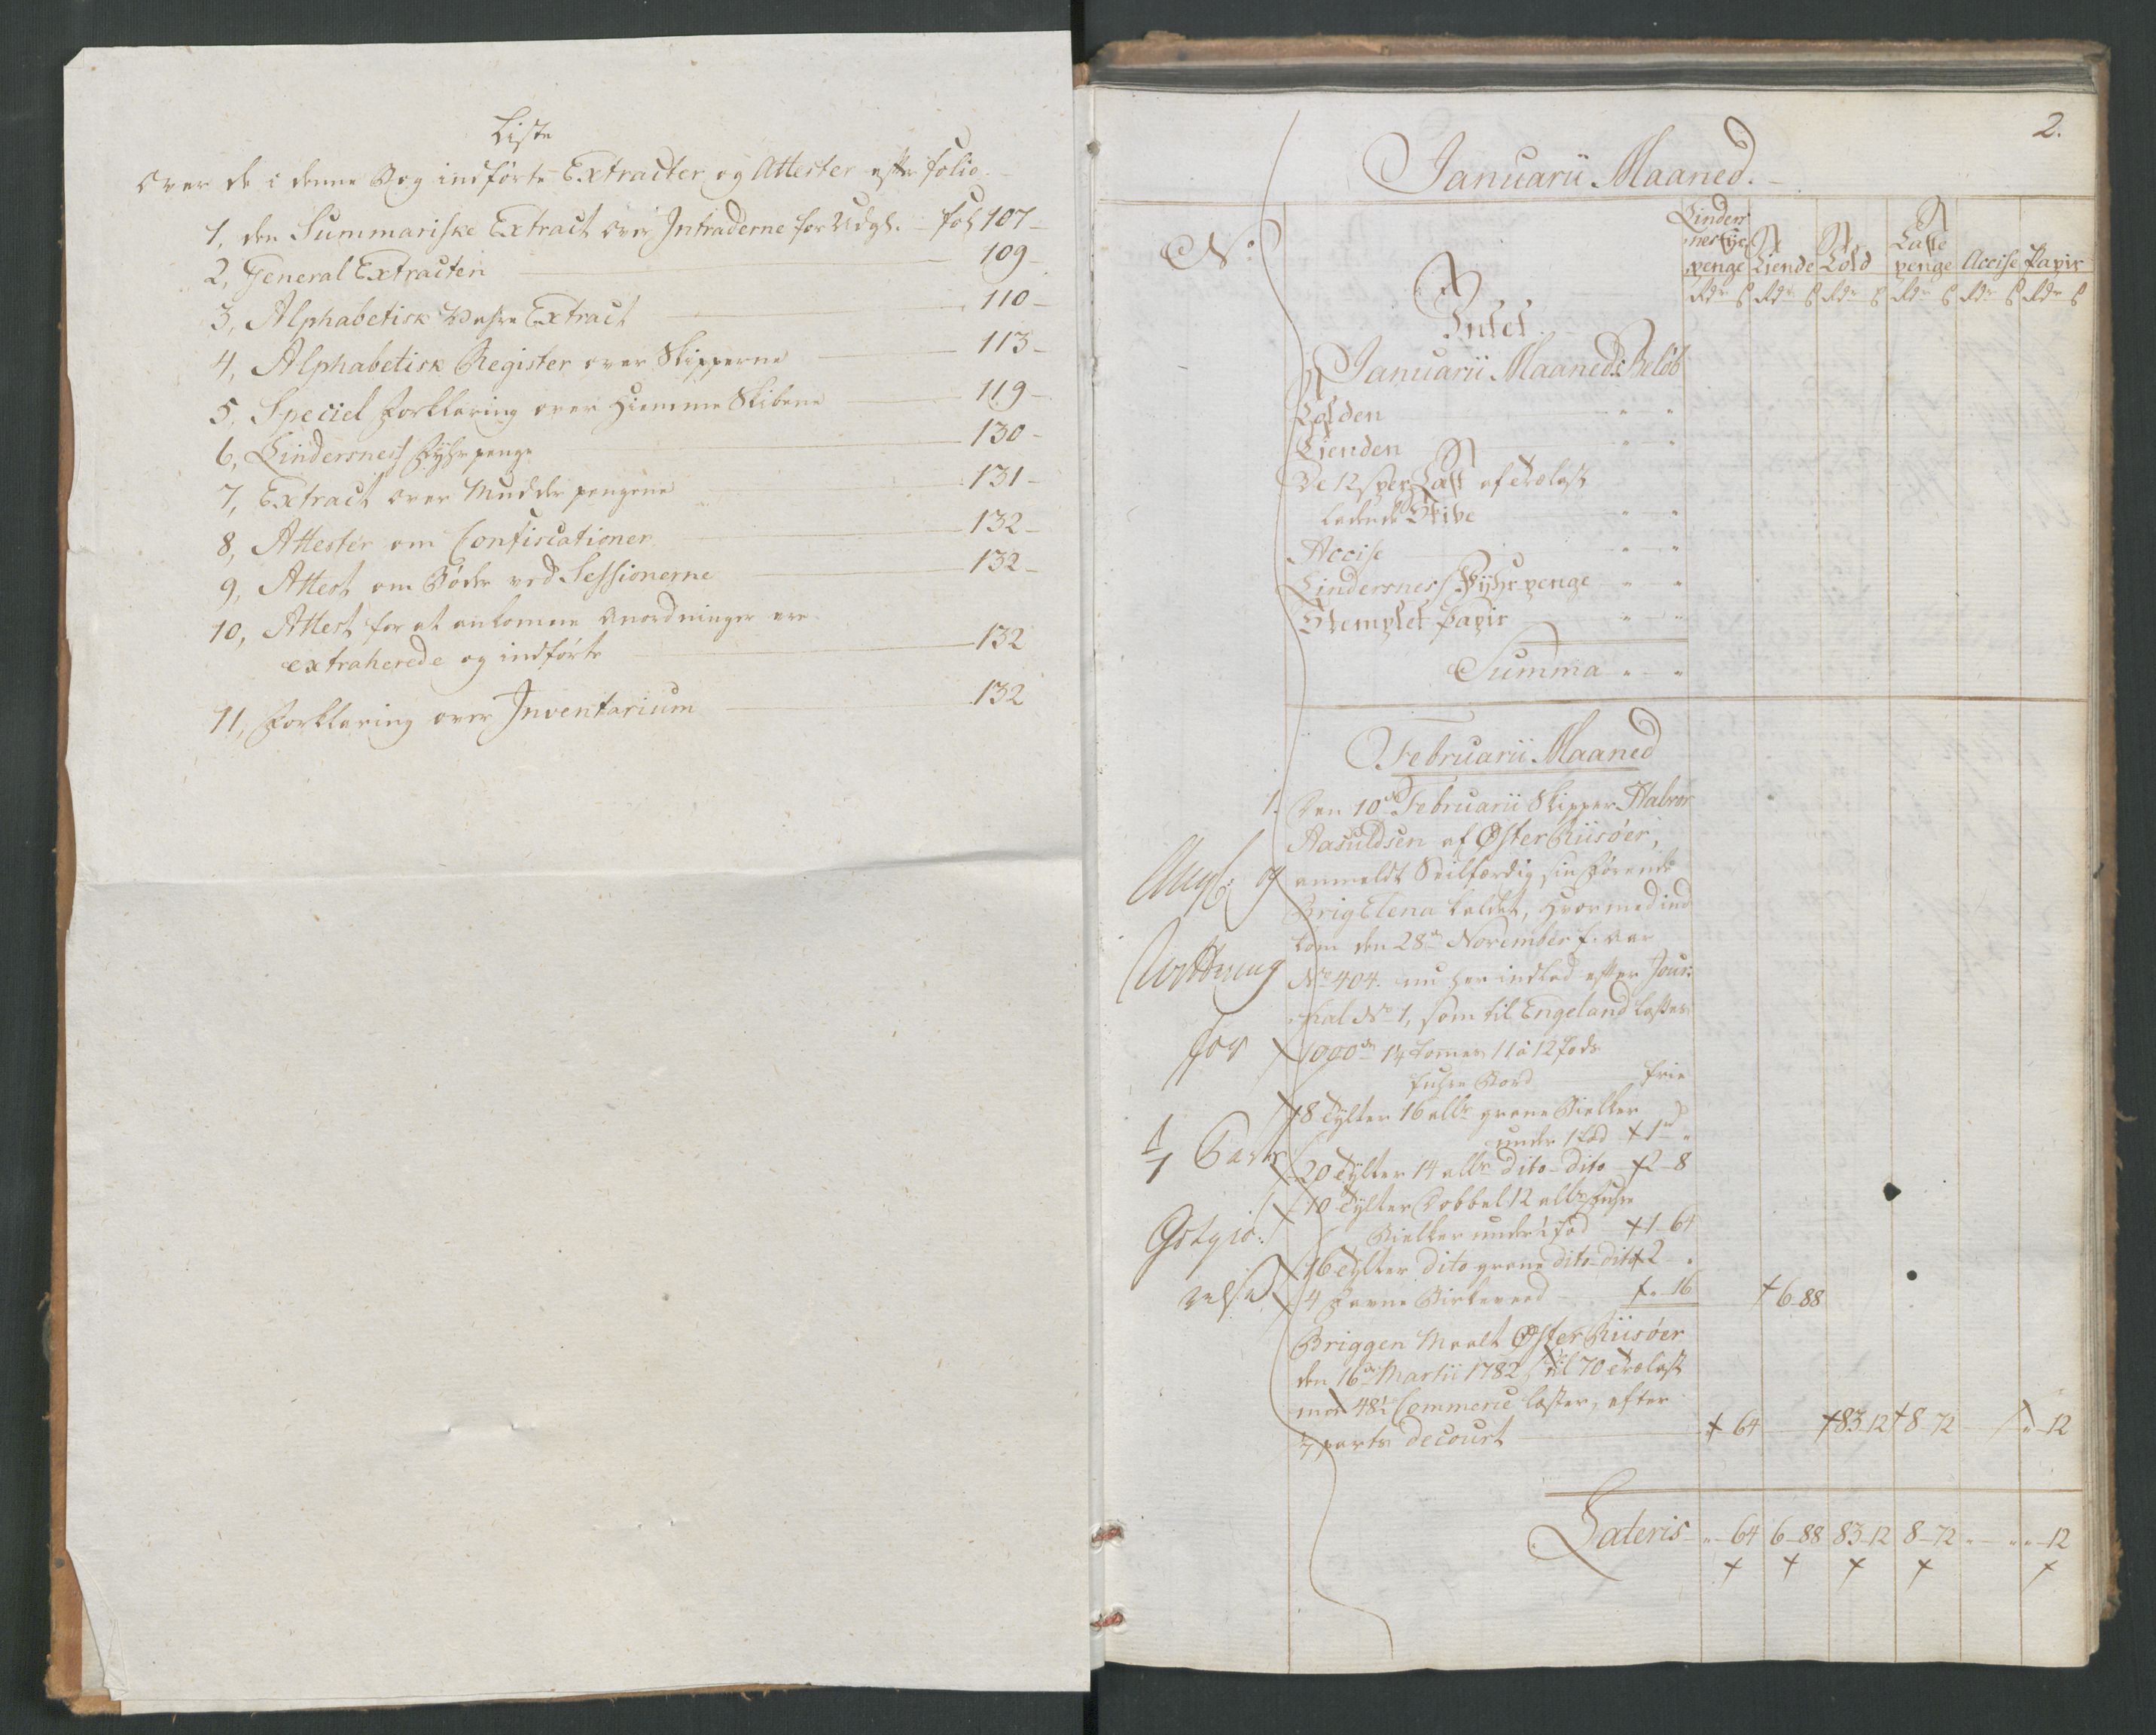 Liste
Over de i denne Bog indførte Extracter og Attester efter folio.
1, den Summariske Extract over Intraderne for Udgl. fol 107
2, General Extracten 109
3, Alphabetisk Vahre Extract 110
4, Alphabetisk Register over Skipperne 113
5, Speciel Forklaring over Hiemme Skibene 119
6, Lindersness Fyhrpenge 130
7, Extract over Mudder pengene 131
8, Attester om Confiscationer 132
9, Attest om Bøder ved Sessionerne 132
10, Attest for at ankomne Anordninger ere
extraherede og indførte 132
11, Forklaring over Inventarium 132
2.
Januarii Maaned.
No.
Linders
nes fyr
penge Tiende Told Laste
penge Accise Papir
Rdr ß Rdr ß Rdr ß Rdr ß Rdr ß Rdr ß
Intet
Januarii Maaneds Beløb
Tolden " "
Tienden " "
De 12 ß per Læst af Trælast
ladende Skibe " "
Accise " "
Lindersness Fyhrpenge " "
Stemplet Papir " "
Summa " "
Februarii Maaned
1. Den 10de Februarii Skipper Halvor
Aasuldsen af Øster Riisöer,
anmeldt Seilfærdig sin Førende
Brig Elena kaldet, hvormed ind
kom den 28de November f. Aar
No 404. nu her indlad efter Jour-
nal No 1, som til Engeland losses
1000de 14 tomers 11 à 12 fods
fuhre Bord frie
18 Tylter 16 all. grane Bielker
under 1 fod 1 "
20 Tylter 14 all. dito dito 2-8
10 Tylter Dobbel 12 all. fuhre
Bielker under 1 fod 1-64
16 Tylter dito grane dito dito 2 "
4 Favne Birkeveed "-16 6-88
Briggen Maalt Øster Riisöer
den 16de Martii 1782, til 70 Trælast
mod 48½ Commerce læster, efter
parts decourt 64 83-12 8-72 "-12
og
for
Lateris "-64 6-88 83-12 8-72 " "-12